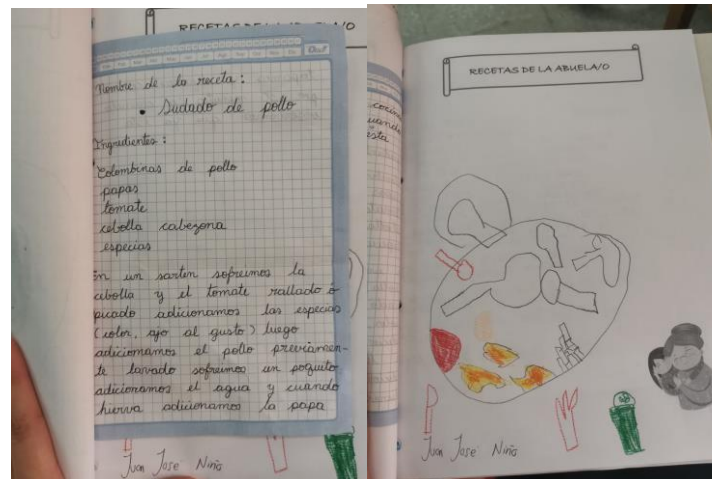 RECETAS DE LA
Nombre de la receta:
• Sudado de pollo
Ingredientes:
Colombinas de pollo
papas
tomate
cebolla cabezona
especias
En un sarten sofreimos la
cebolla y el tomate rallado ó
picado adicionamos las especias
(color, ajo al gusto) luego
adicionamos el pollo previamen-
te lavado sofreimos un poquito
adicionamos el agua y cuando
hierva adicionamos la papa
Juan Jose Niño
RECETAS DE LA ABUELA/O
cocine
esta
Juan Jose Niño